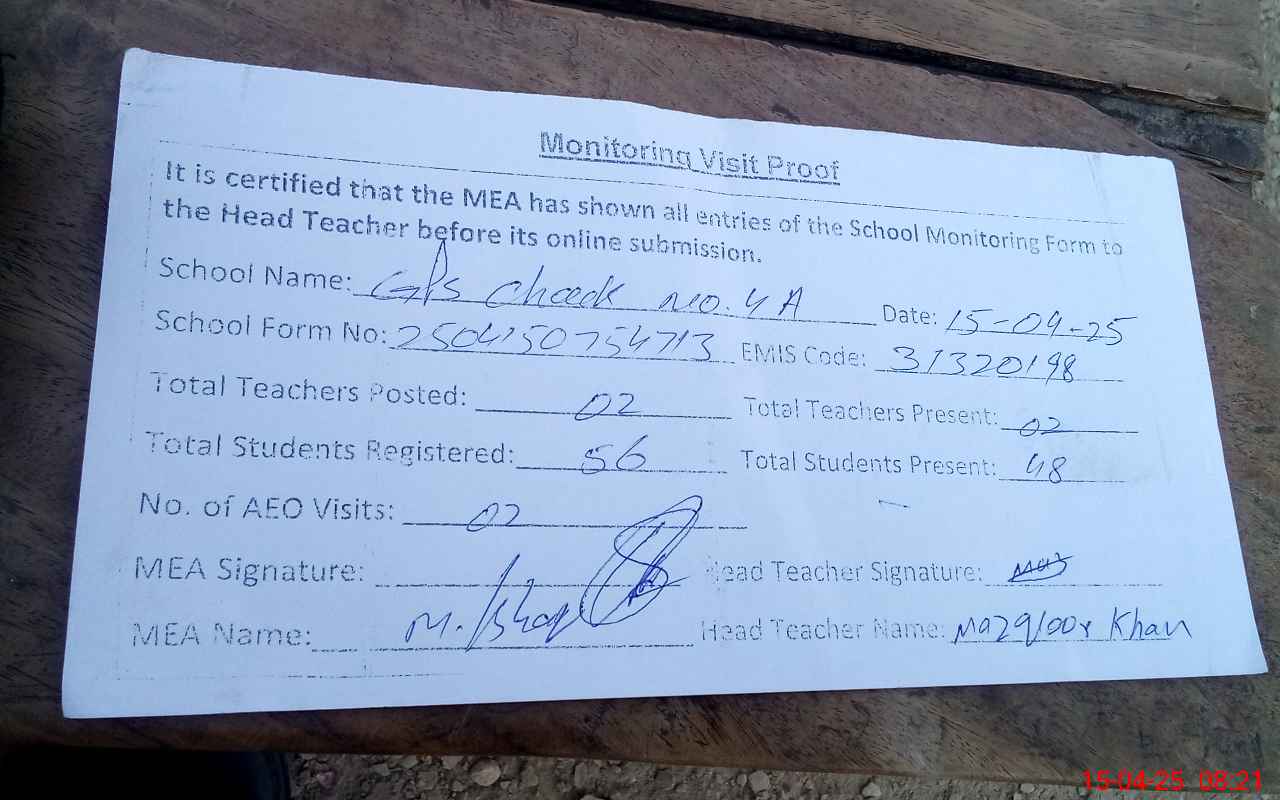 Monitoring Visit Proof
It is certified that the MEA has shown all entries of the School Monitoring Form to
the Head Teacher before its online submission.
School Name: GPS Chack No. 4 A Date: 15-04-25
School Form No: 2504150754713 EMIS Code: 31320198
Total Teachers Posted: 02 Total Teachers Present: 02
Total Students Registered: 56 Total Students Present: 48
No. of AEO Visits: 02
MEA Signature: Head Teacher Signature:
MEA Name: M. Head Teacher Name: Khan
15-04-25 08:21